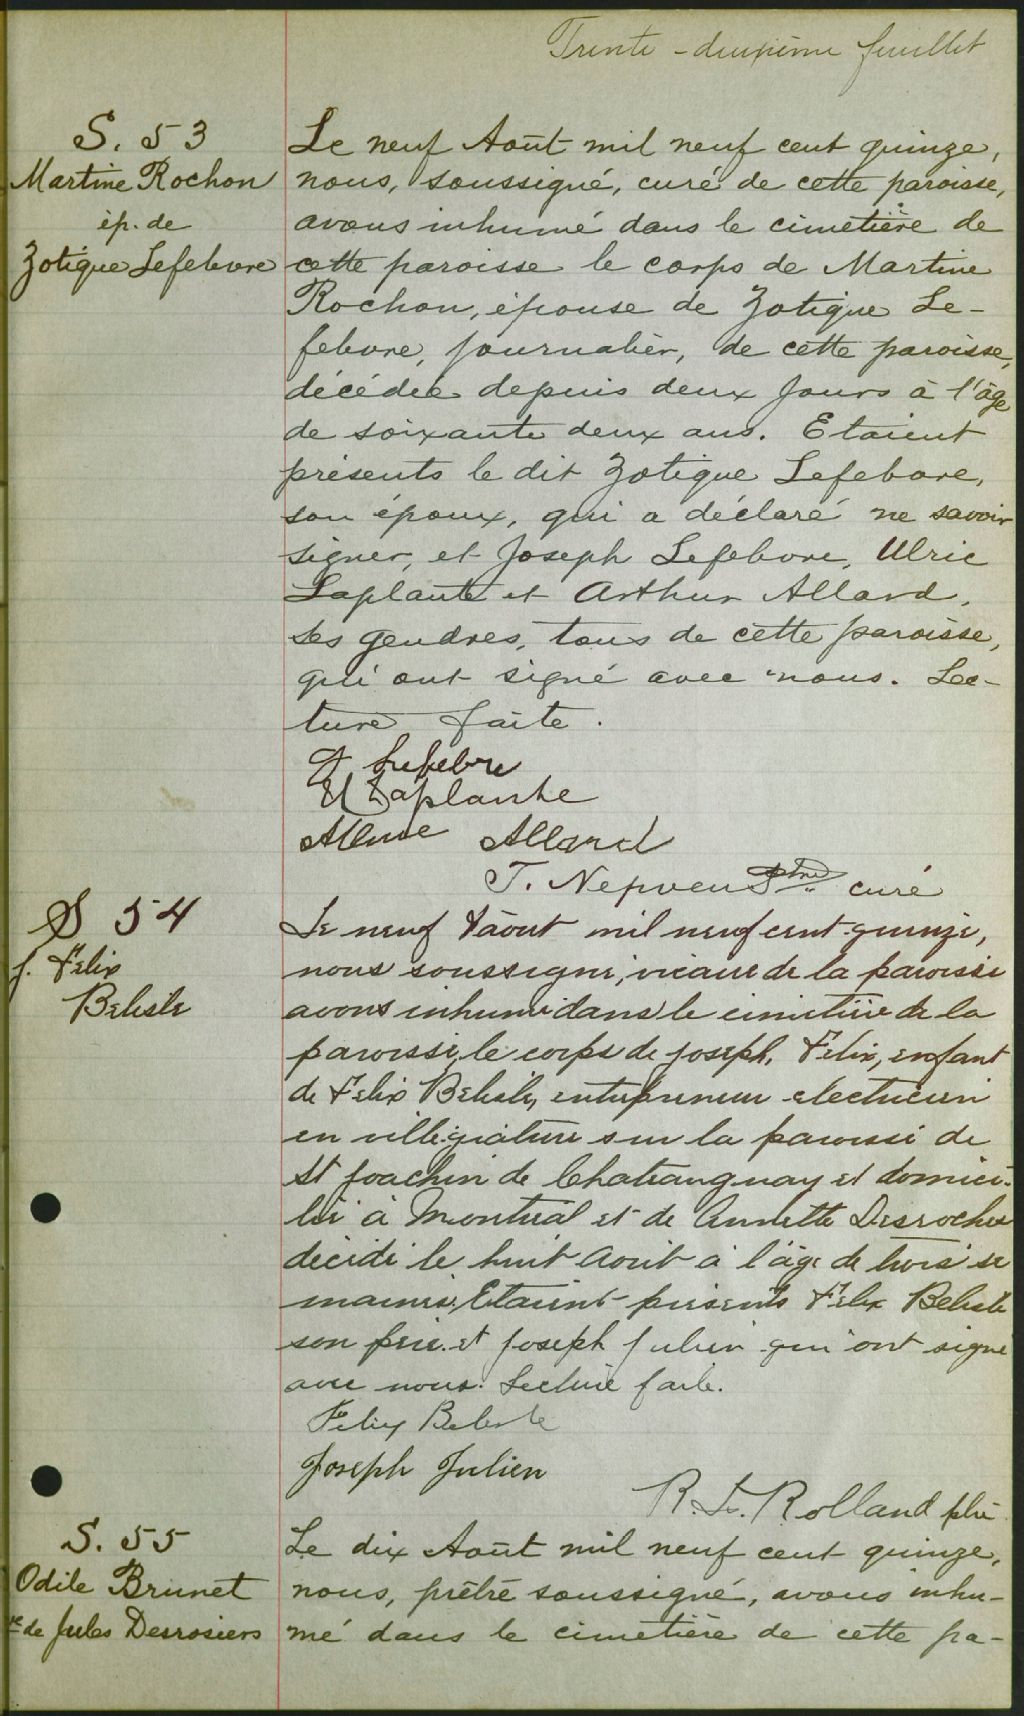 Trente-deuxième feuillet
S. 53
Martine Rochon
ép. de
Zotique Lefebvre
Le neuf Août mil neuf cent quinze,
nous, soussigné, curé de cette paroisse,
avons inhumé dans le cimetière de
cette paroisse le corps de Martine
Rochon, épouse de Zotique Le-
febvre, journalier, de cette paroisse,
décédée depuis deux jours à l'âge
de soixante deux ans. Etaient
présents le dit Zotique Lefebvre,
son époux, qui a déclaré ne savoir
signer, et Joseph Lefebvre, Ulric
Laplante et Arthur Allard,
ses gendres, tous de cette paroisse,
qui ont signé avec nous. Lec-
ture faite.
J Lefebre
U Laplante
Allard
T. Nepveu Ptre curé
S 54
J. Félix
Belisle
Le neuf août mil neuf cent quinze,
nous soussigné, vicaire de la paroisse
avons inhumé dans le cimetière de la
paroisse, le corps de Joseph, Félix, enfant
de Félix Belisle, entrepreneur electricien
en villégiature sur la paroisse de
St Joachin de Chateauguay et domici-
lié à Montréal et de Annette Desroches
décédé le huit Août à l'âge de trois se
maines. Etaient présents Félix Belisle
son père et Joseph Julien qui ont signé
avec nous. Lecture faite.
Felix Belisle
Joseph Julien
R. L. Rolland ptre
S. 55
Odile Brunet
ve de Jules Desrosiers
Le dix Août mil neuf cent quinze,
nous, prêtre soussigné, avons inhu-
mé dans le cimetière de cette pa-